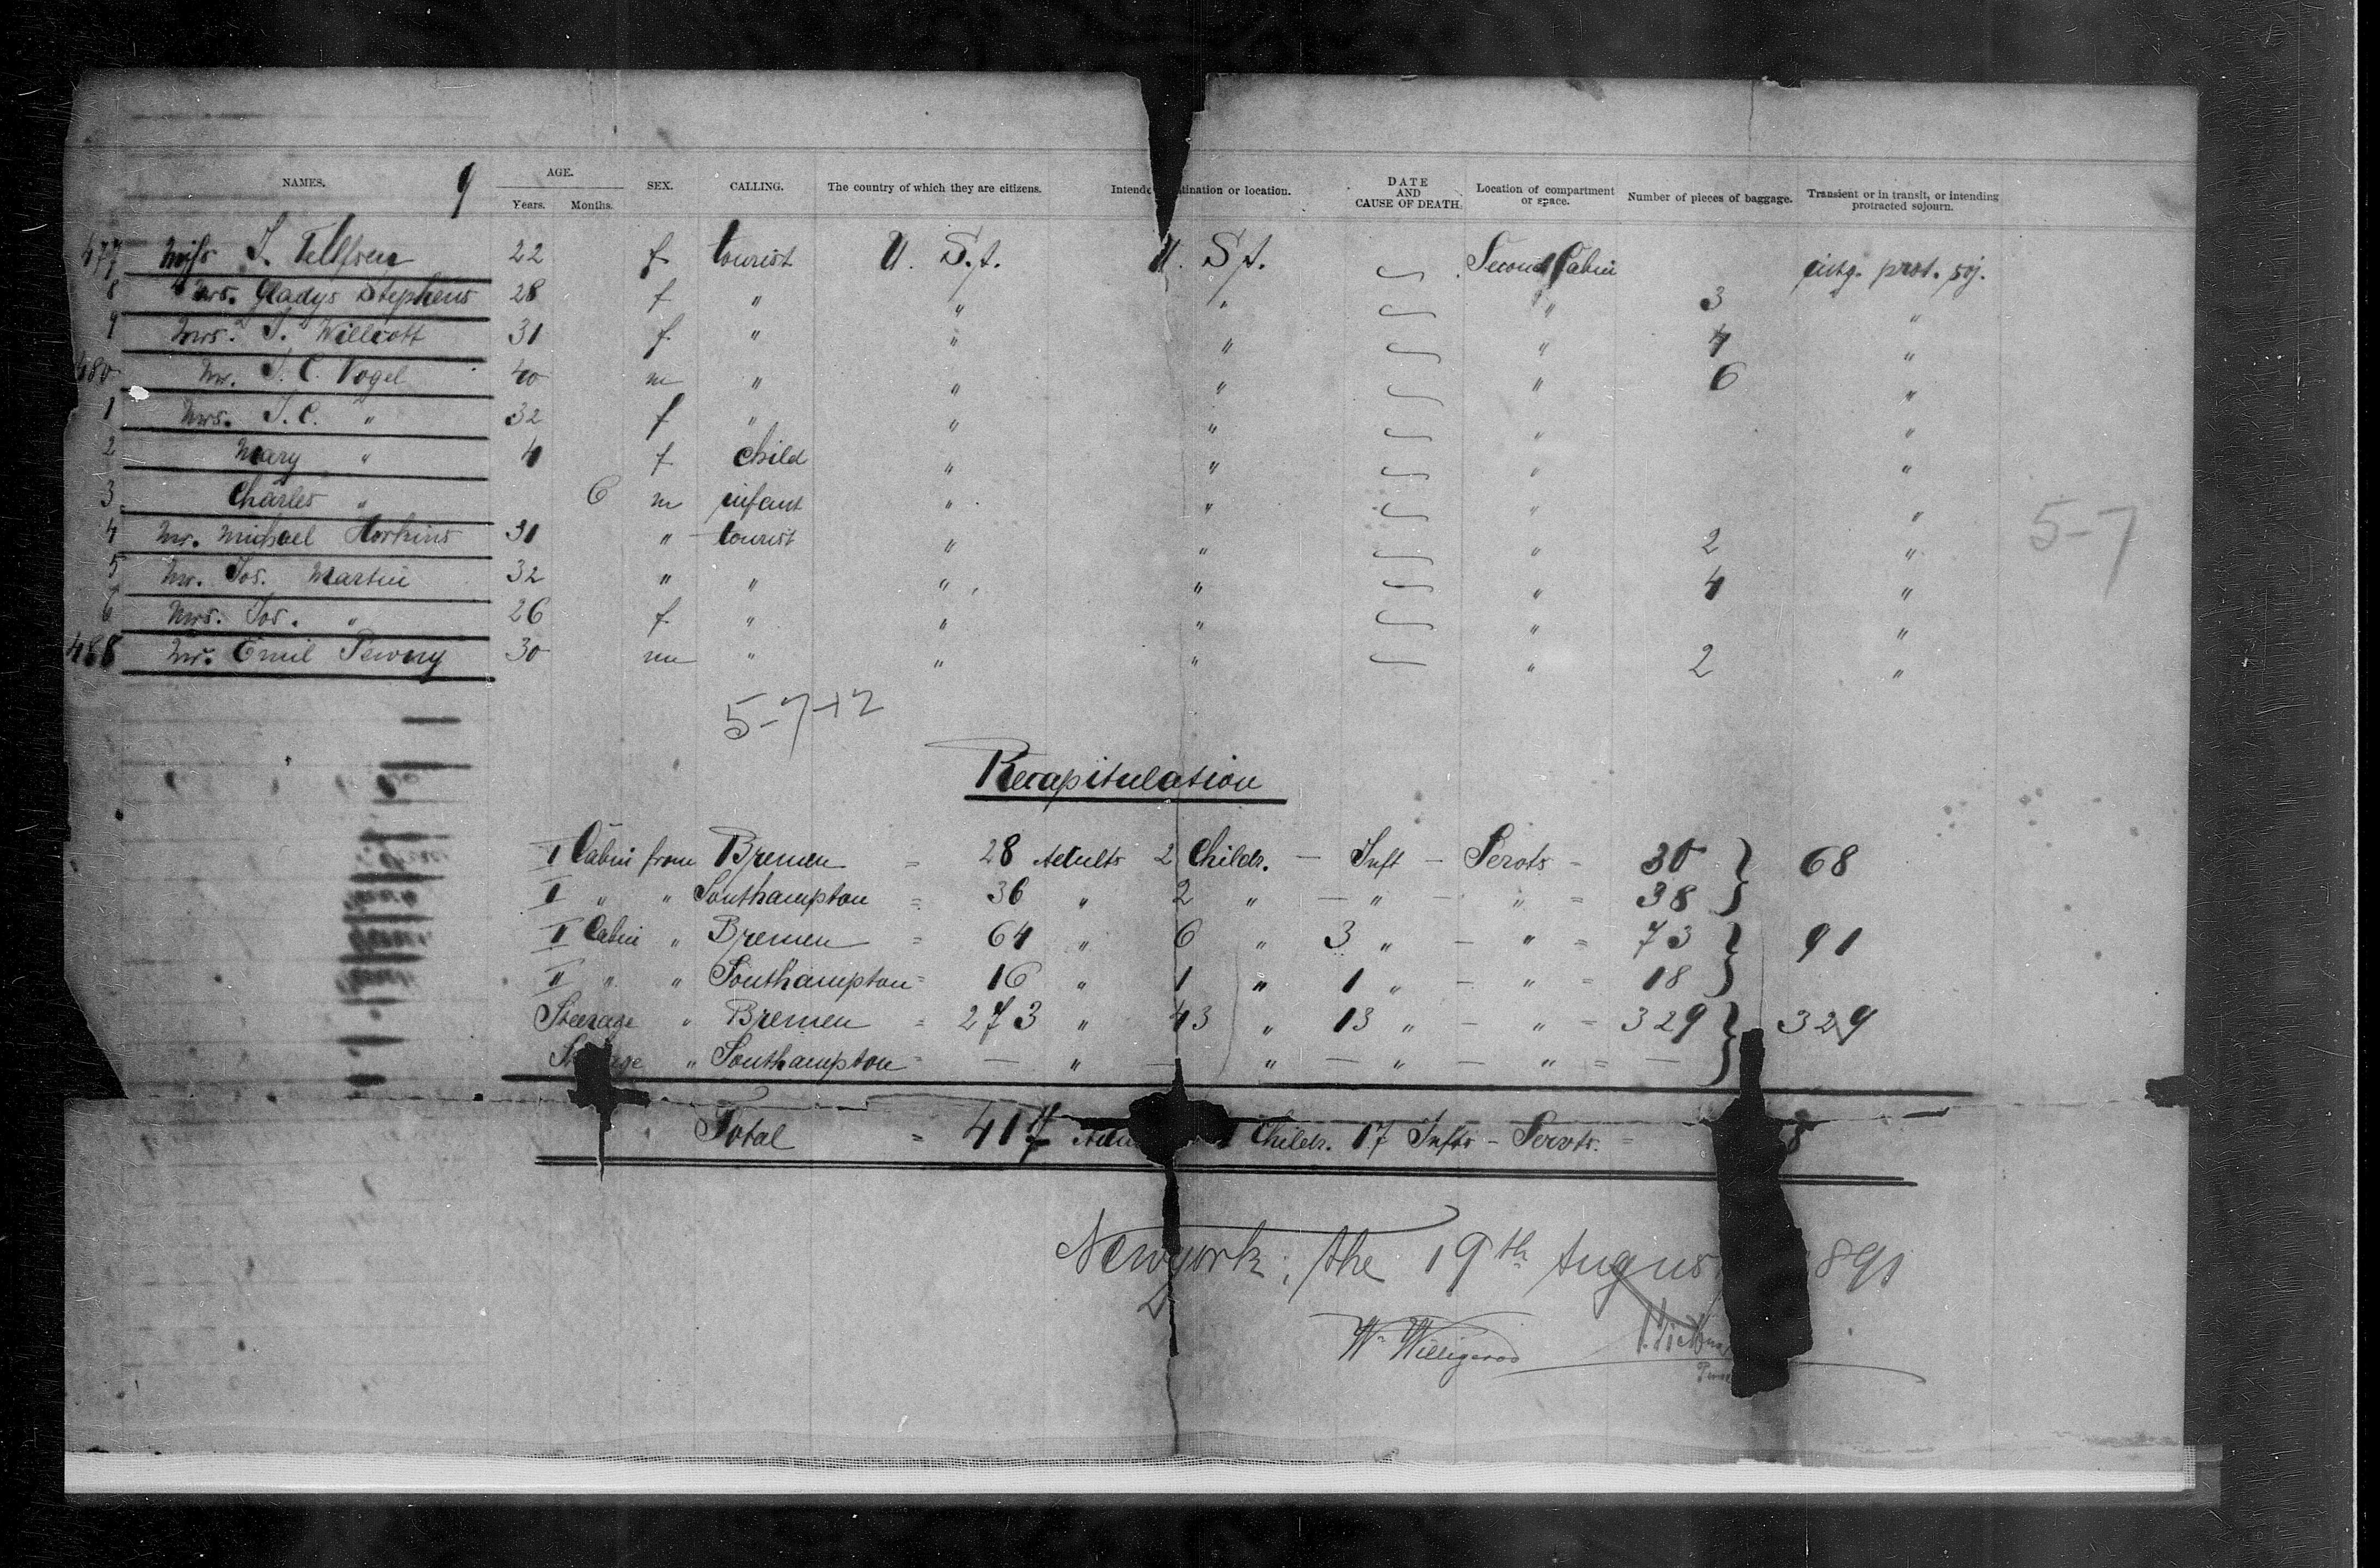 NAMES. 9 AGE. SEX. CALLING. The country of which they are citizens. tination or location. DATE AND CAUSE OF DEATH. Location of compartment or space. Number of pieces of baggage. Transient or in transit, or intending protracted sojourn.
Years. Months.
477 Miss 22 f tourist U. St. U. St. Second Cabin intg. prot. soj.
8 Mrs. Gladys Stephens 28 f " " " " 3 "
9 Mrs. T. Willcott 31 f. " " " " 4 "
480 Mr. J. C. Vogel 40 m " " " " 6 "
1 Mrs. J. C. " 32 f " " " " "
2 Mary " 4 f child " " " "
3 Charles " 6 m infant " " " "
4 Mr. Michael Horkins 31 " tourist " " " 2 "
5 Mr. Jos. Martin 32 " " " " " 4 "
6 Mrs. Jos. " 26 f. " " " " "
488 Mr. Emil 30 m " " " " 2 "
5-7
5-7-12
Recapitulation
I Cabin from Bremen = 28 Adults 2 Childr. - Inft - Servts = 30 } 68
I " " Southampton = 36 " 2 " - " - " = 38 }
II Cabin " Bremen = 64 " 6 " 3 " - " = 73 } 91
II " " Southampton = 16 " 1 " 1 " - " = 18 }
Steerage " Bremen = 273 " 43 " 13 " - " = 329 } 329
" Southampton = - " - " - " - " = - }
Total = 417 Childr. 17 Infts - Servts. = 8
Newyork, the 19th 891
W. Willigerod